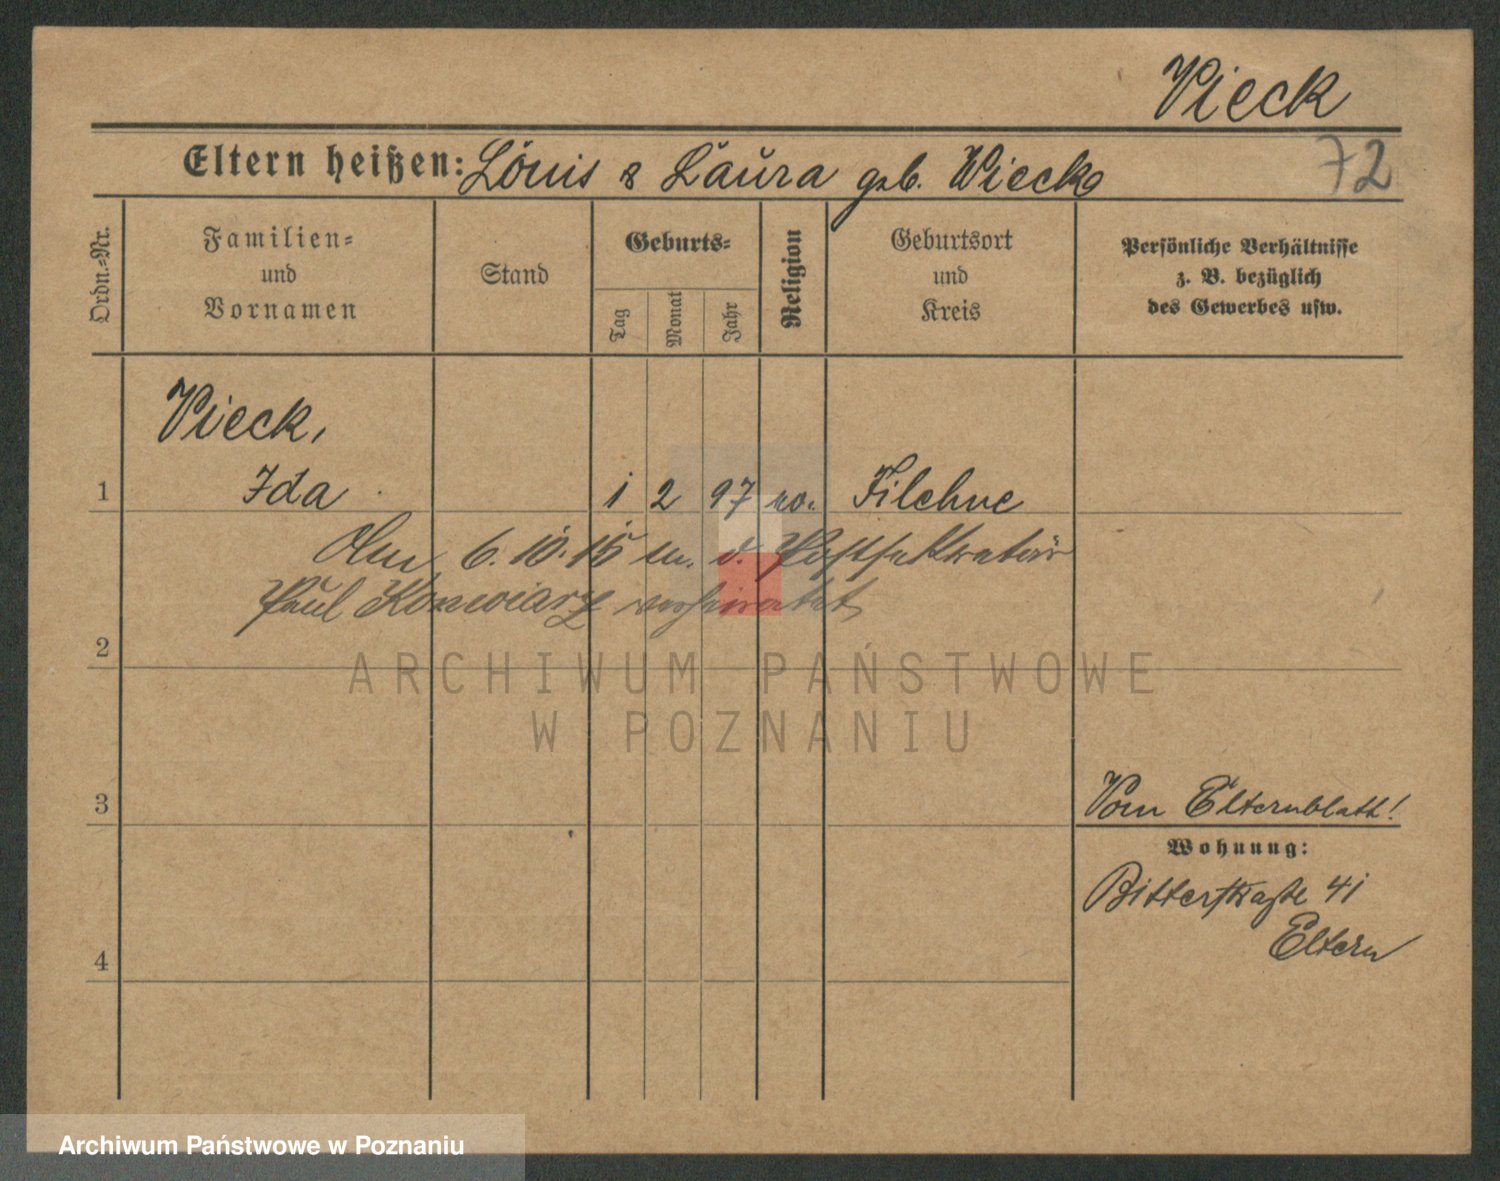 Vieck
Eltern heißen: Louis & Laura geb. Wiecke
72
Ordn.-Nr.
Familien-
und
Vornamen
Stand
Geburts-
Tag
Monat
Jahr
Religion
Geburtsort
und
Kreis
Persönliche Verhältnisse
z. B. bezüglich
des Gewerbes usw.
Vieck,
1 Ida 1 2 97 ev. Filehne
Am 6.10.15 m. d. Postsekretär
Paul verheiratet
2
ARCHIWUM PAŃSTWOWE
W POZNANIU
3
Vom Elternblatt!
Wohnung:
Bitterstraße 41
Eltern
4
Archiwum Państwowe w Poznaniu